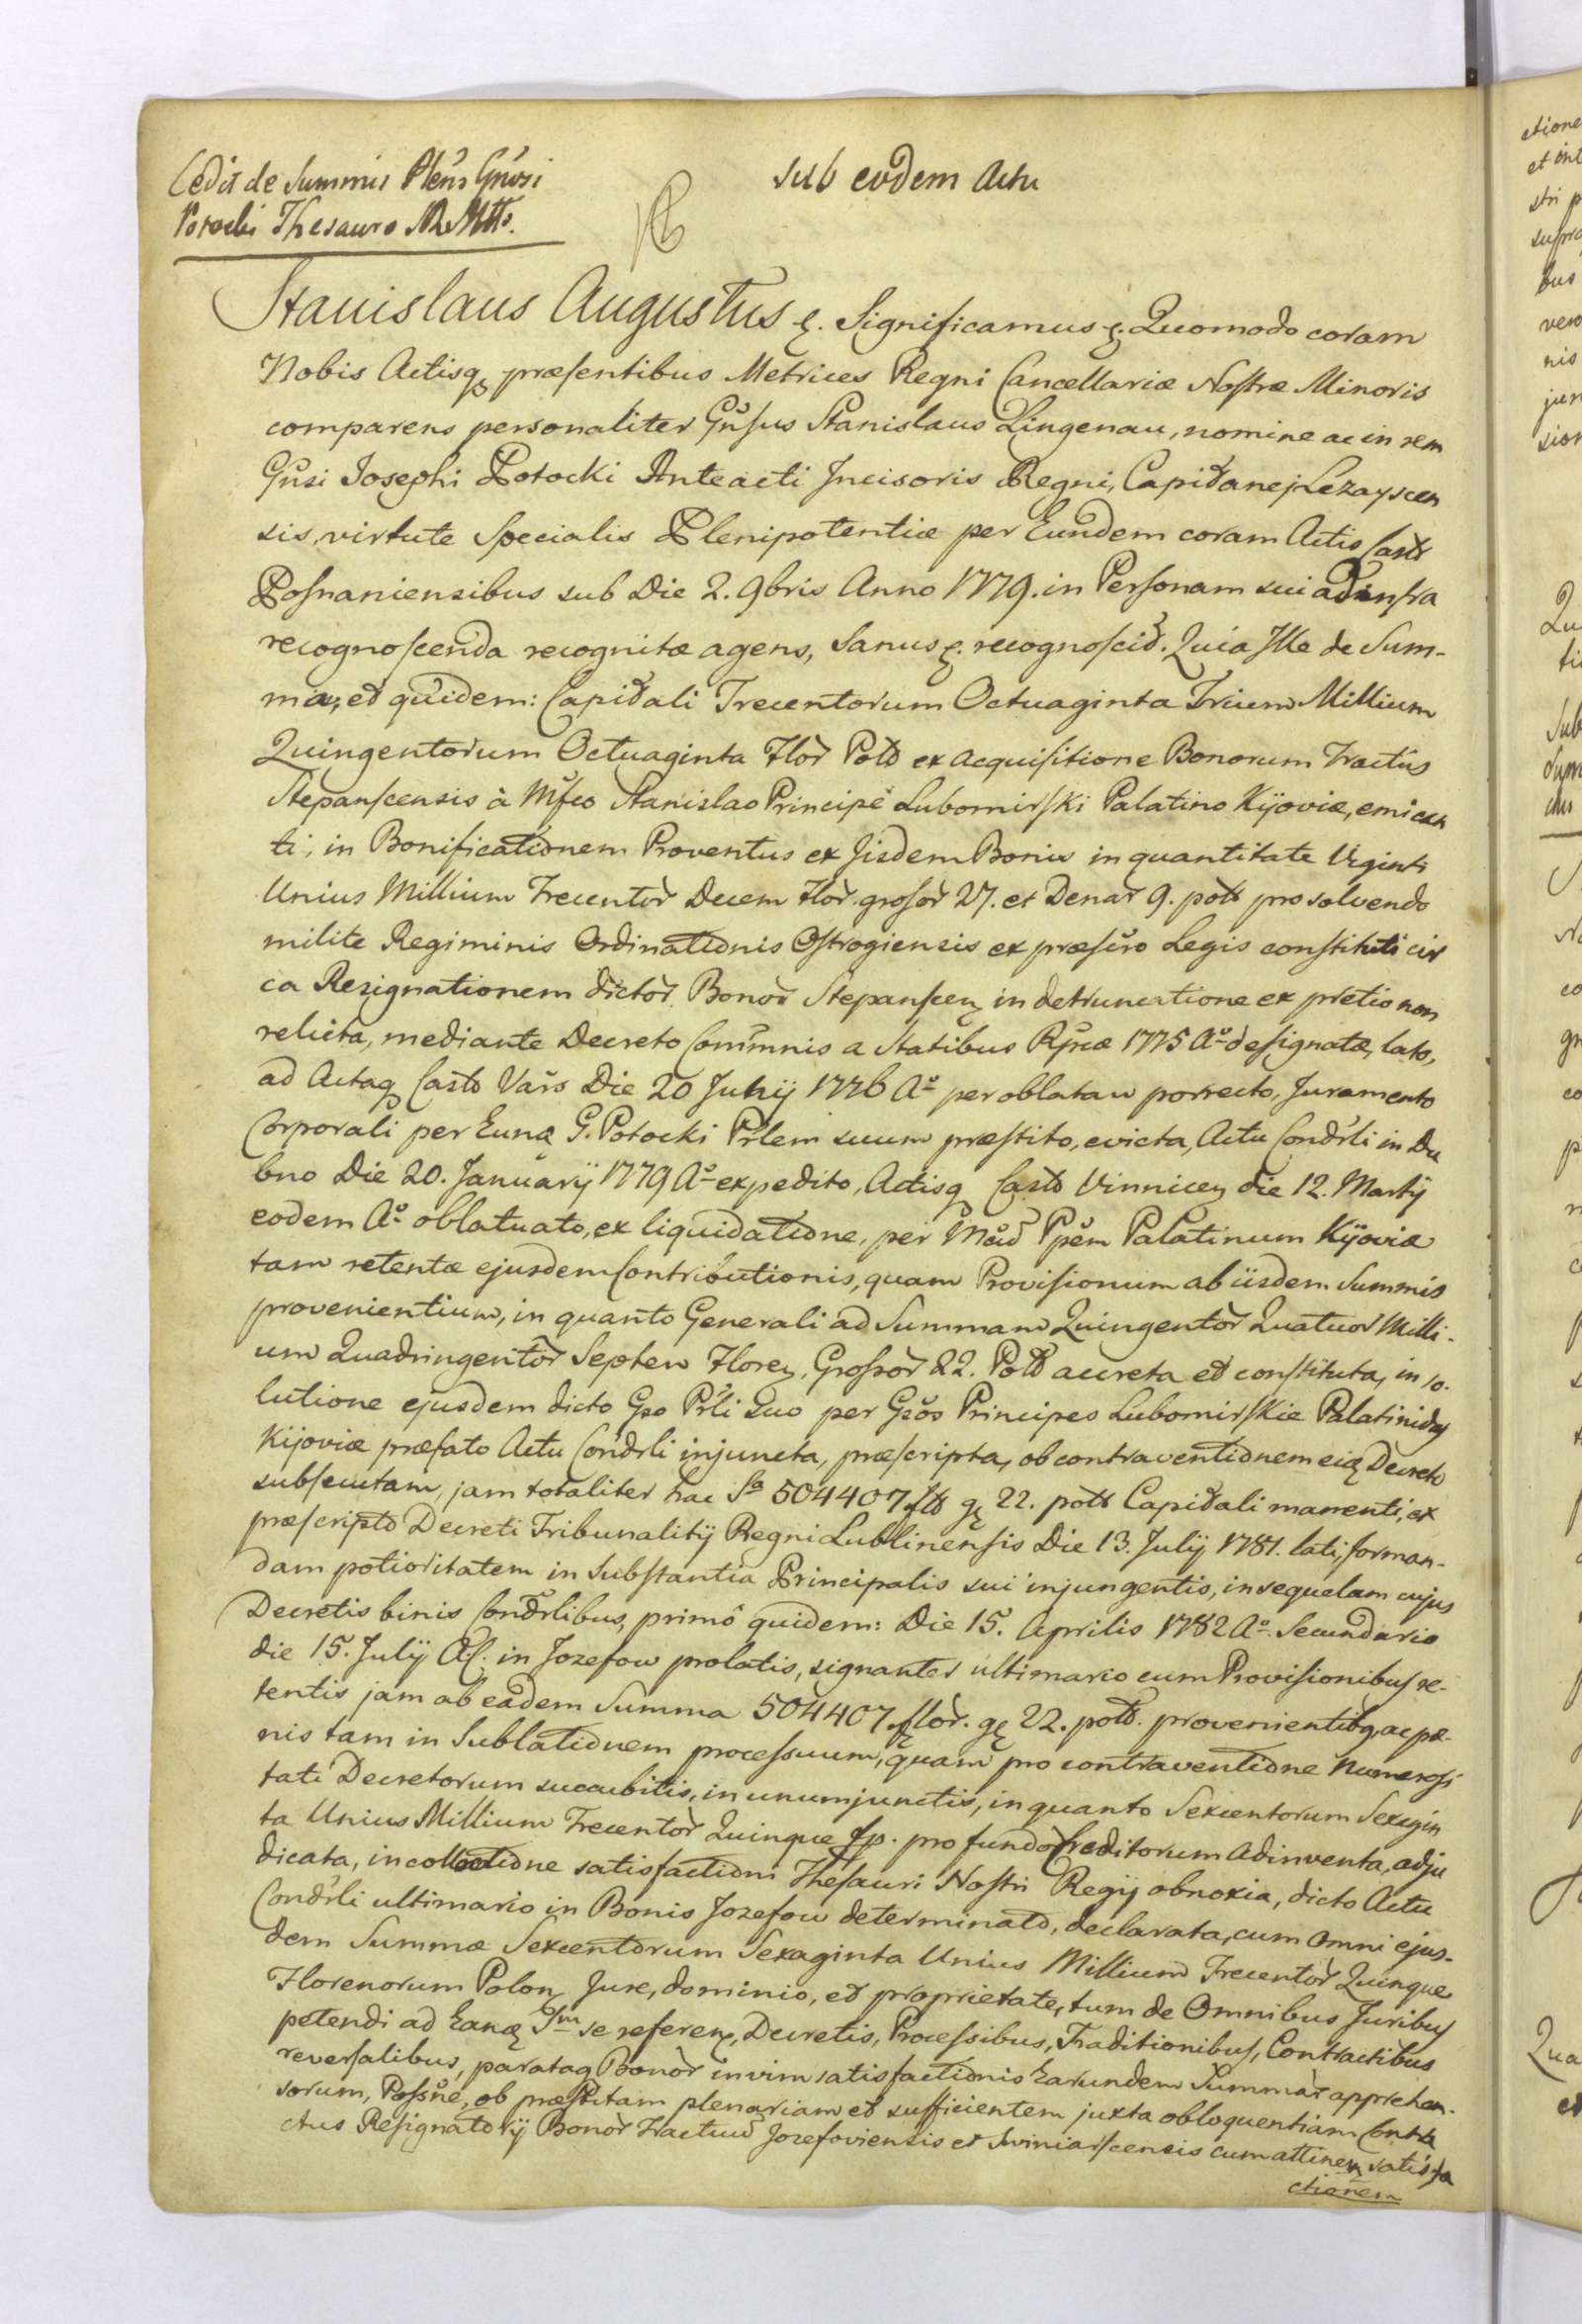 Cedit de Summis Plens Gnrosi
Potocki Thesauro
sub eodem Actu
Stanislaus Augustus &. Significamus &. Quomodo coram
Nobis Actisq præsentibus Metrices Regni Cancellariæ Nostræ Minoris
comparens personaliter Gnsus Stanislaus Lingenau, nomine ac in rem
Gnsi Josephi Potocki Anteacti Incisoris Regni, Capitanej Lezayscen
sis, virtute Specialis Plenipotentiæ per Eundem coram Actis Castr
Posnaniensibus sub Die 2. 9bris Anno 1779. in Personam sui ad infra
recognoscenda recognitæ agens, Sanus &. recognoscit. Quia Ille de Sum-
ma, et quidem: Capitali Trecentorum Octuaginta Trium Millium
Quingentorum Octuaginta Flor Pold ex Acquisitione Bonorum Tractus
Stepanscensis à Mfco Stanislao Principe Lubomirski Palatino Kijoviæ, emican
ti, in Bonificationem Proventus ex Iisdem Bonis in quantitate Viginti
Unius Millium Trecentor Decem Flor. grosor 27. et Denar 9. poll pro solvendo
milite Regiminis Ordinationis Ostrogiensis ex præscro Legis constituti cir
ca Resignationem dictor Bonor Stepanscen in detruncatione ex pretio non
relicta, mediante Decreto Commnis a Statibus Rpcæ 1775 Ao designatæ, lato,
ad Actaq Castr Vars Die 20 Julij 1776 Ao per oblatam porrecto, Juramento
Corporali per Eunq G. Potocki Prlem suum præstito, evicta, Actu Condrli in Du
bno Die 20. January 1779 Ao expedito, Actisq Castr Vinnicen die 12. Martij
eodem Ao oblatuato, ex liquidatione, per Mcud Ppem Palatinum Kijoviæ
tam retentæ ejusdem Contributionis, quam Provisionum ab iisdem Summis
provenientium, in quanto Generali ad Summam Quingentor Quatuor Milli-
um Quadringentor Septem Floren, Grossor 22. Pold accreta et constituta, in so-
lutione ejusdem dicto Gso Prli suo per Gsos Principes Lubomirskie Palatinidas
Kijoviæ præfato Actu Condrli injuncta, præscripta, ob contraventionem eiq Decreto
subsecutam, jam totaliter hac Sa 504407 fld gr 22. poll Capitali manenti, ex
præscripto Decreti Tribunalitij Regni Lublinensis Die 13. July 1781. lati, forman-
dam potioritatem in Substantia Principalis sui injungentis, in sequelam cujus
Decretis binis Condrlibus, primô quidem: Die 15. Aprilis 1782 Ao. Secundario
die 15. July in Jozefow prolatis, signanter ultimario cum Provisionibus re-
tentis jam ab eadem Summa 504407. flor. gr 22. pold. provenientibq, ac pæ-
nis tam in Sublationem processuum, quam pro contraventione Numerosi
tati Decretorum succubitis, in unum junctis, in quanto Sexcentorum Sexagin
ta Unius Millium Trecentor Quinque fp. pro fundo Creditorum Adinventa, adju
dicata, in collocatione satisfactioni Thesauri Nostri Regij obnoxia, dicto Actu
Condrli ultimario in Bonis Jozefow determinato, declarata, cum Omni ejus-
dem Summæ Sexcentorum Sexaginta Unius Millium Trecentor Quinque
Florenorum Polon Jure, dominio, et proprietate, tum de Omnibus Juribus
petendi ad Eanq Sm se referen, Decretis, Processibus, Traditionibus, Contractibus
reversalibus, parataq Bonor in vim satisfactionis Earundem Summar apprehen-
sorum, Possne, ob præstitam plenariam et sufficientem juxta obloquentiam Contra
ctus Resignatorij Bonor Tractuu Jozefoviensis et Swiniarscensis cum attinen satisfa
ctionem